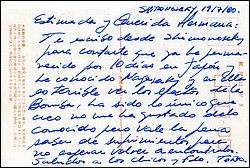 19/7/80.
Estimada y Querida Hermana:
Te escribo desde Shimonoseki
para contarte que ya he perma
necido por 10 días en Japón y
he conocido Nagasaki y en ella
es terrible ver los efectos de la
Bomba, ha sido lo único que
creo no me ha gustado de lo
conocido pero vale la pena
pasar de
no esperar
Saludos a los Chicos y Fdo.